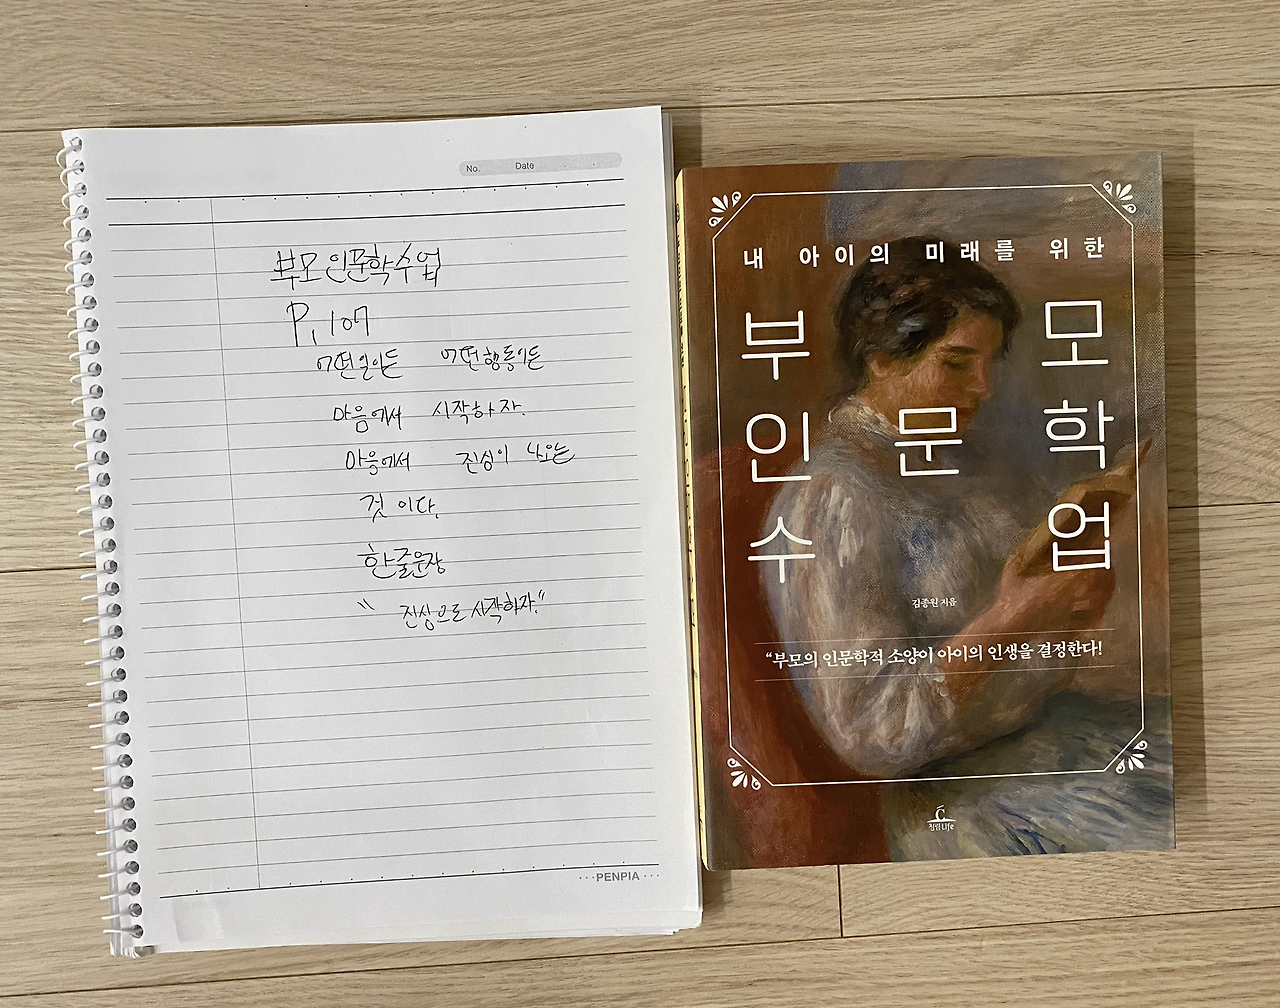 No. Date
부모 인문학 수업
P. 107
어떤 일이든 어떤 행동이든
마음에서 시작하자.
마음에서 진심이 나오는
것이다.
한줄문장
"진심으로 시작하자."
···PENPIA···
내 아이의 미래를 위한
부모
인문학
수업
김종원 지음
“부모의 인문학적 소양이 아이의 인생을 결정한다!
청림Life